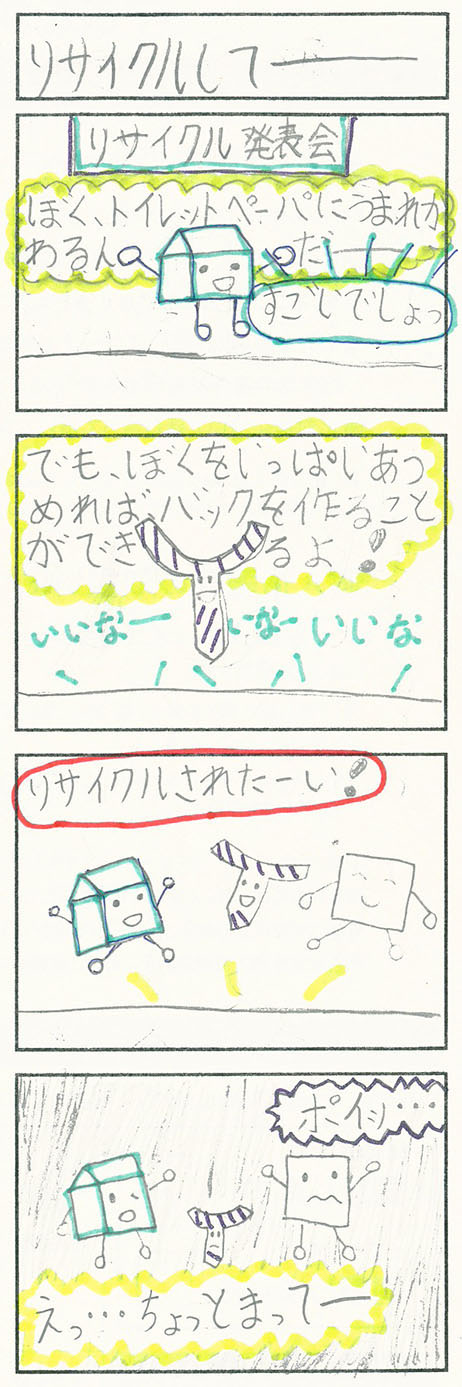 リサイクルしてーー
リサイクル発表会
ぼく、トイレットペーパにうまれか
わるんだーー
すごいでしょっ
でも、ぼくをいっぱいあつ
めれば、バックを作ること
ができるよ!
いいなー いいなー いいな
リサイクルされたーい!
ポイッ…
えっ…ちょっとまってー